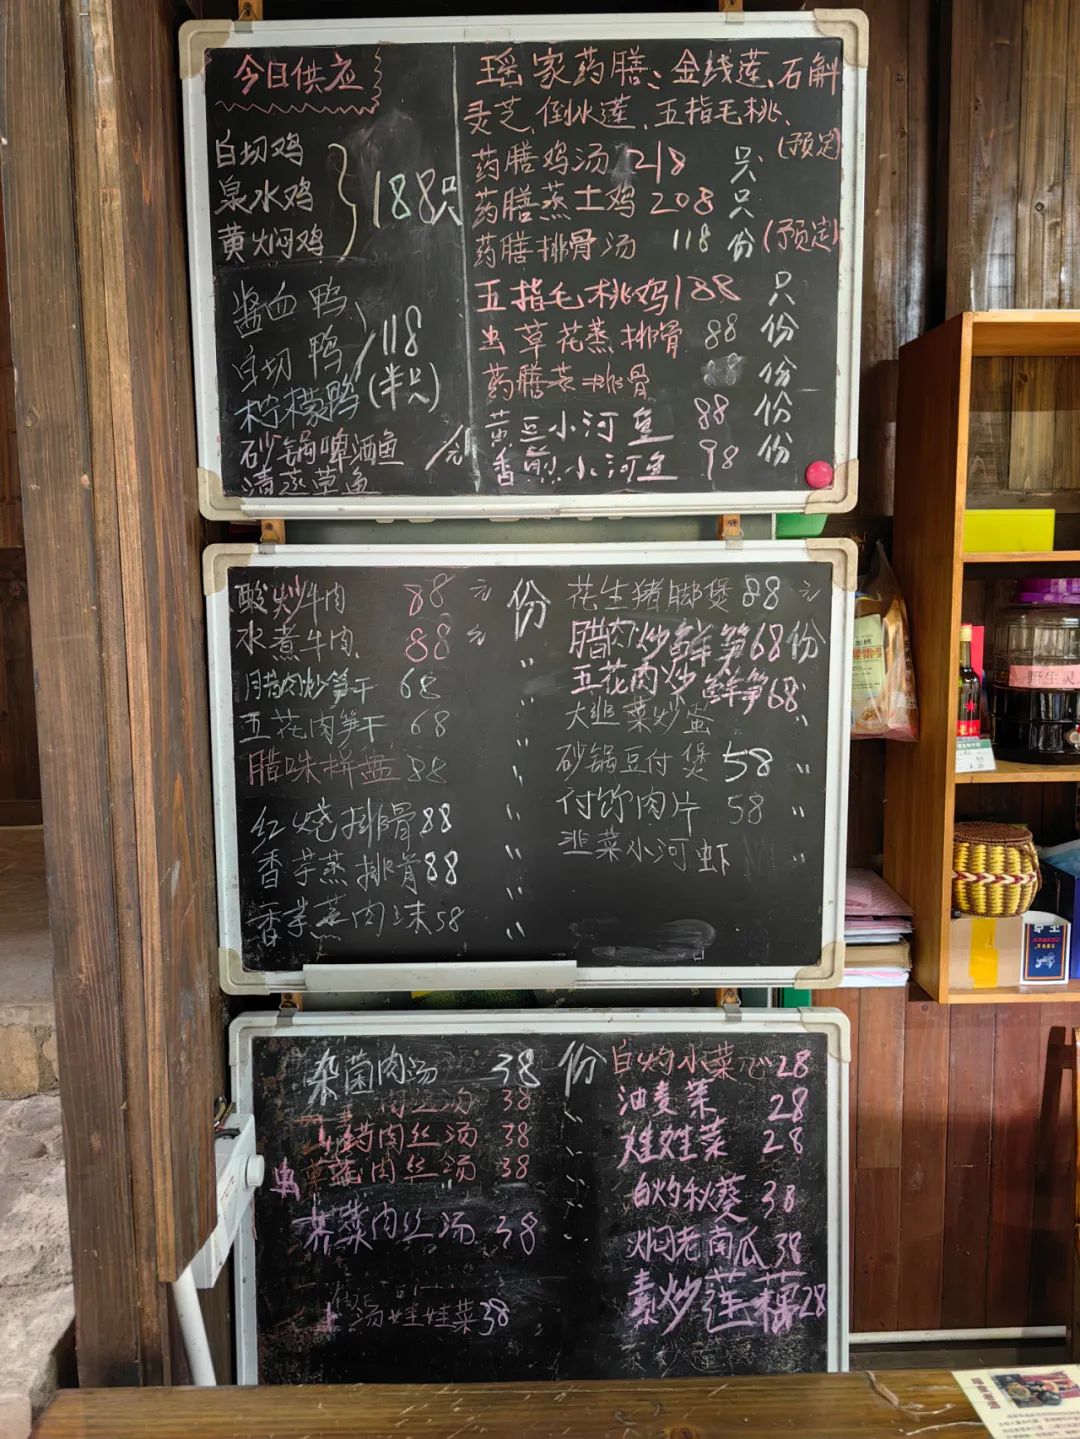 今日供应
白切鸡
泉水鸡
黄焖鸡
188只
酱血鸭
白切鸭
柠檬鸭
118
(半只)
砂锅啤酒鱼
清蒸草鱼
瑶家药膳、金线莲、石斛
灵芝、倒水莲、五指毛桃、
药膳鸡汤 218 只 (预定)
药膳蒸土鸡 208 只
药膳排骨汤 118 份 (预定)
五指毛桃鸡 188 只
虫草花蒸排骨 88 份
药膳蒸排骨 88 份
黄豆小河鱼 88 份
香煎小河鱼 98 份
酸炒牛肉 88 元 份
水煮牛肉 88 元 〃
腊肉炒笋干 68 〃
五花肉笋干 68 〃
腊味拼盘 88 〃
红烧排骨 88 〃
香芋蒸排骨 88 〃
香芋蒸肉沫 58 〃
花生猪脚煲 88 元
腊肉炒鲜笋 68 份
五花肉炒鲜笋 68 〃
大韭菜炒蛋
砂锅豆付煲 58 〃
付竹肉片 58 〃
韭菜小河虾 〃
杂菌肉汤 38 份
肉丝汤 38 〃
药肉丝汤 38 〃
虫草花肉丝汤 38 〃
芥菜肉丝汤 38 〃
汤娃娃菜 38
白灼小菜心 28
油麦菜 28
娃娃菜 28
白灼秋葵 38
焖老南瓜 38
素炒莲藕 28
野生灵